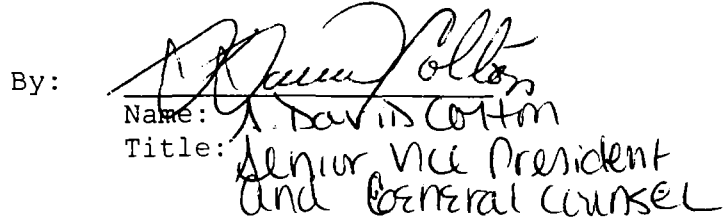 By: David Colton
Name: David Colton
Title: Senior Vice President
and General Counsel